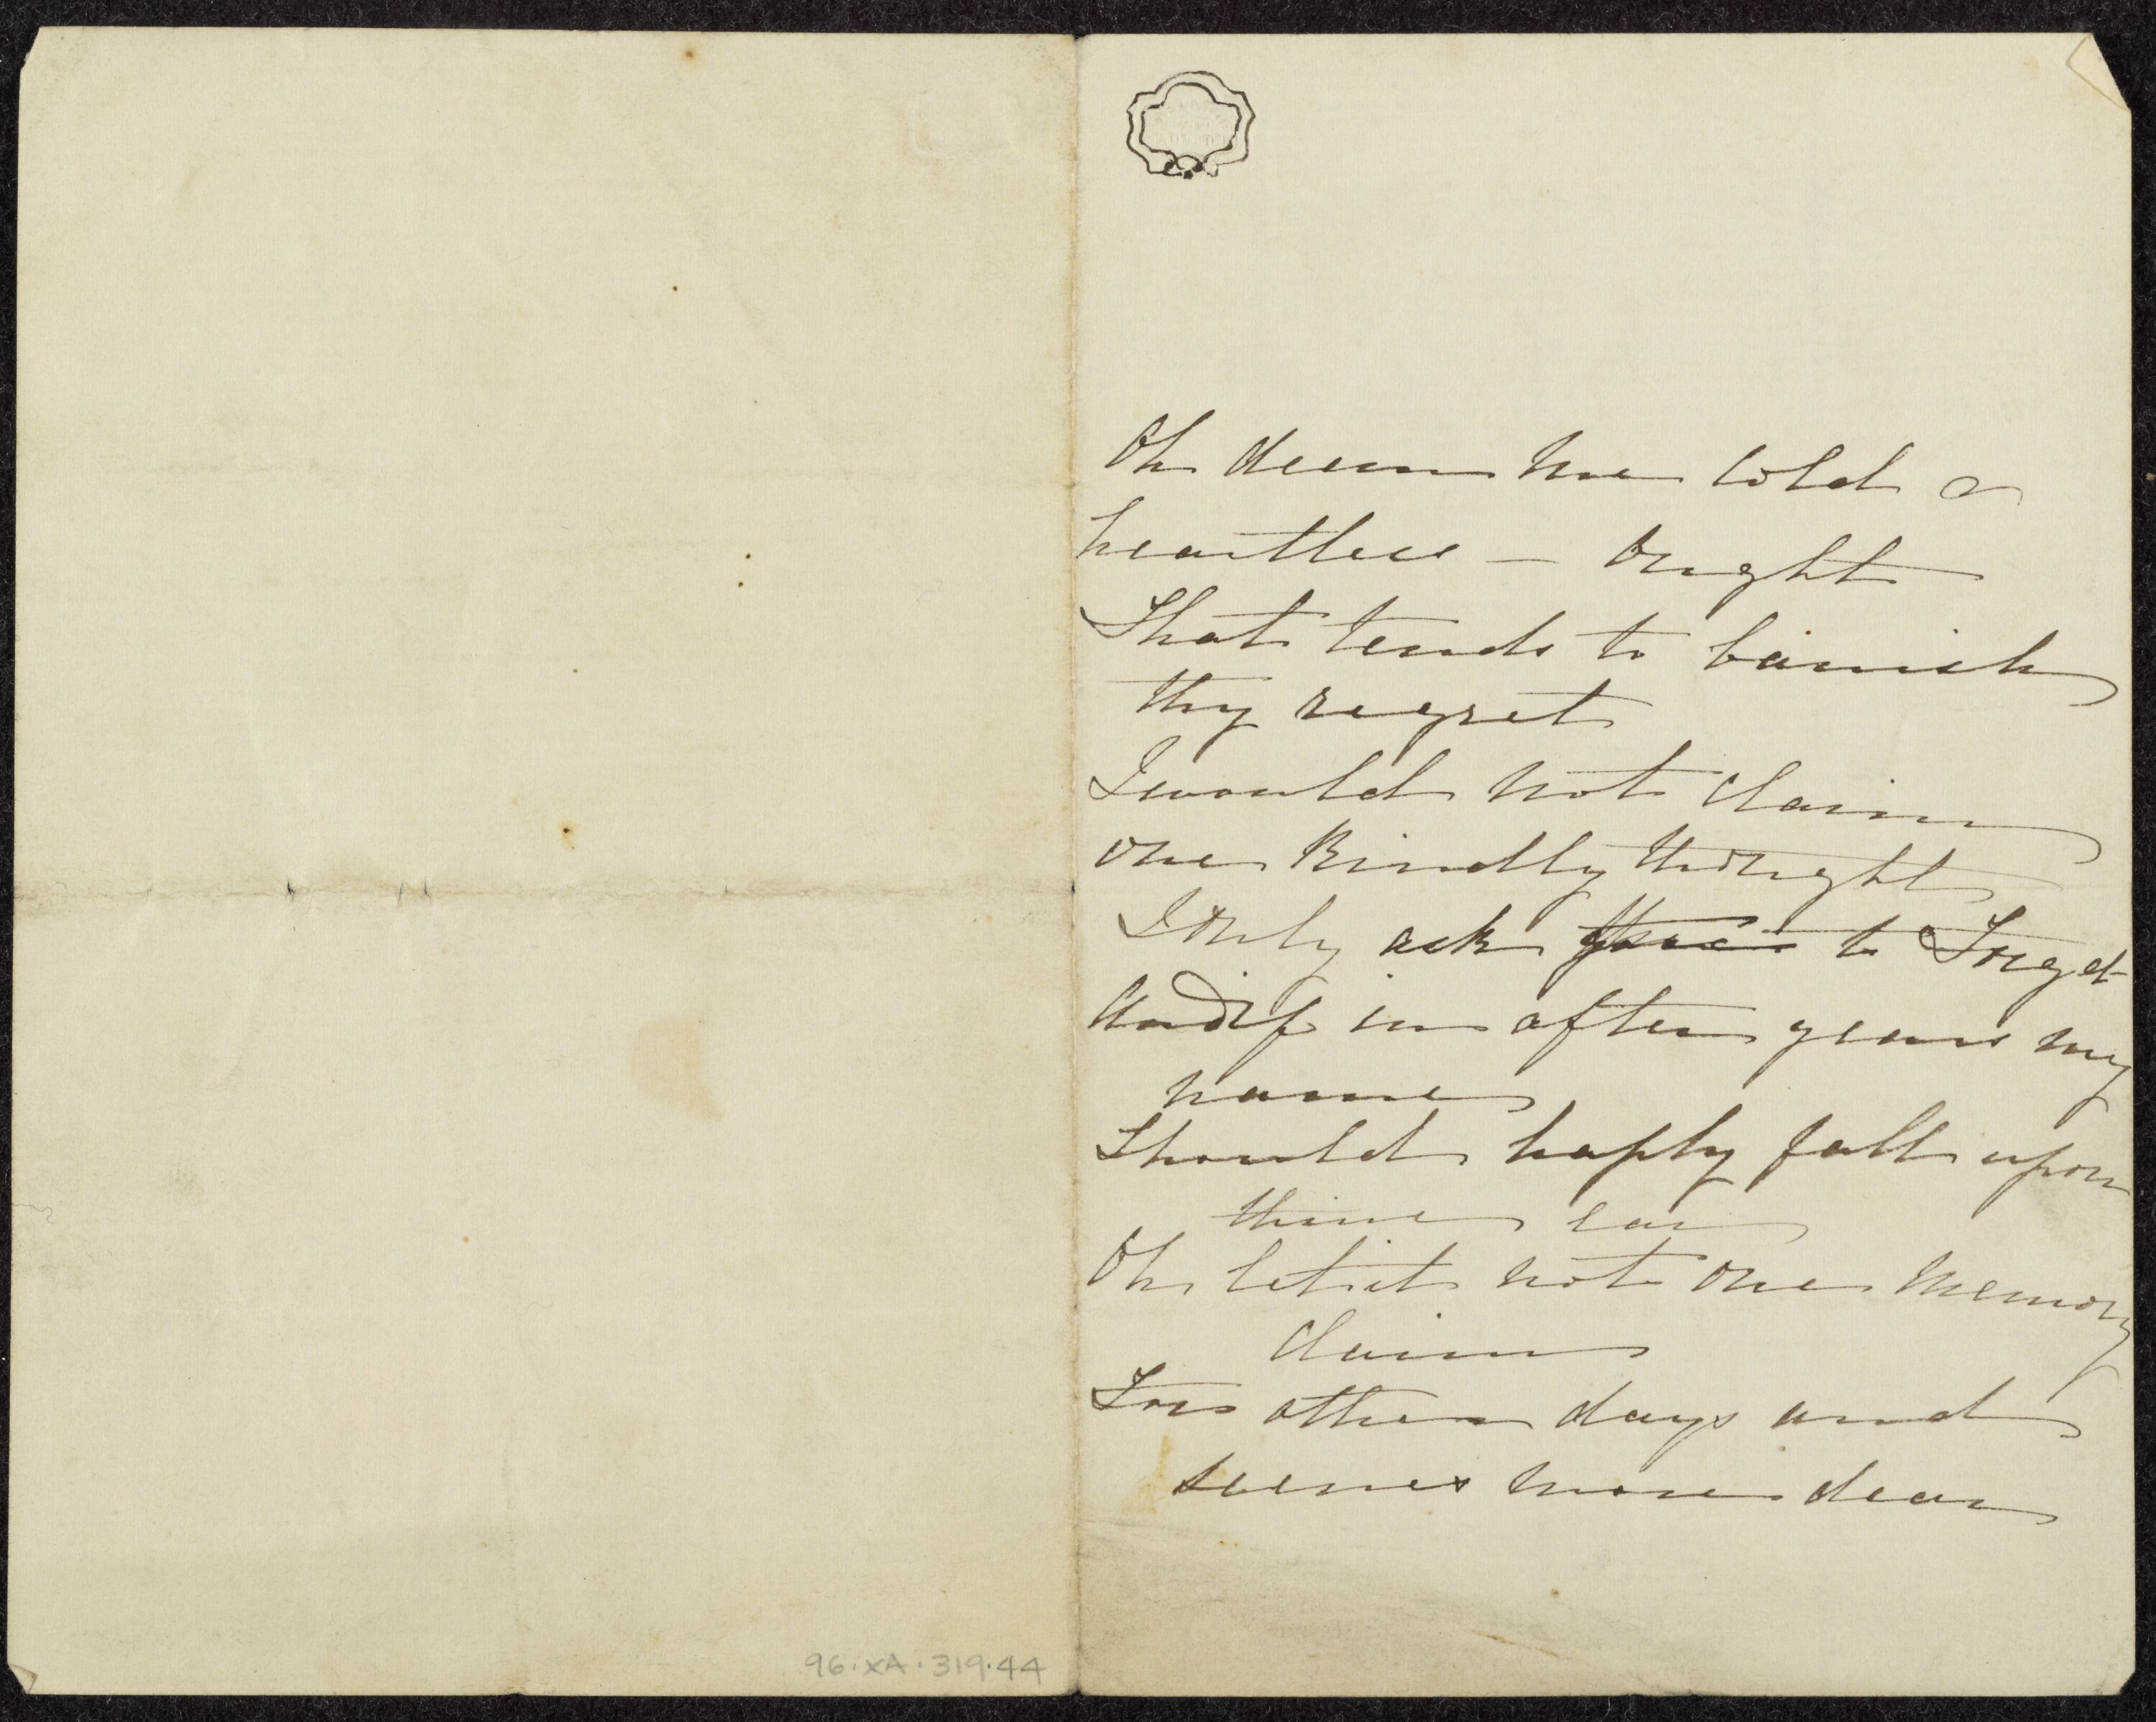 Oh deem me cold or
heartless — ought
That tends to banish
thy regret
I would not claim
one kindly thought
I only ask to Forget
And if in after years my
name
Should haply fall upon
thine ear
Oh let it not one memory
claim
From other days and
scenes more dear
96.XA.319.44